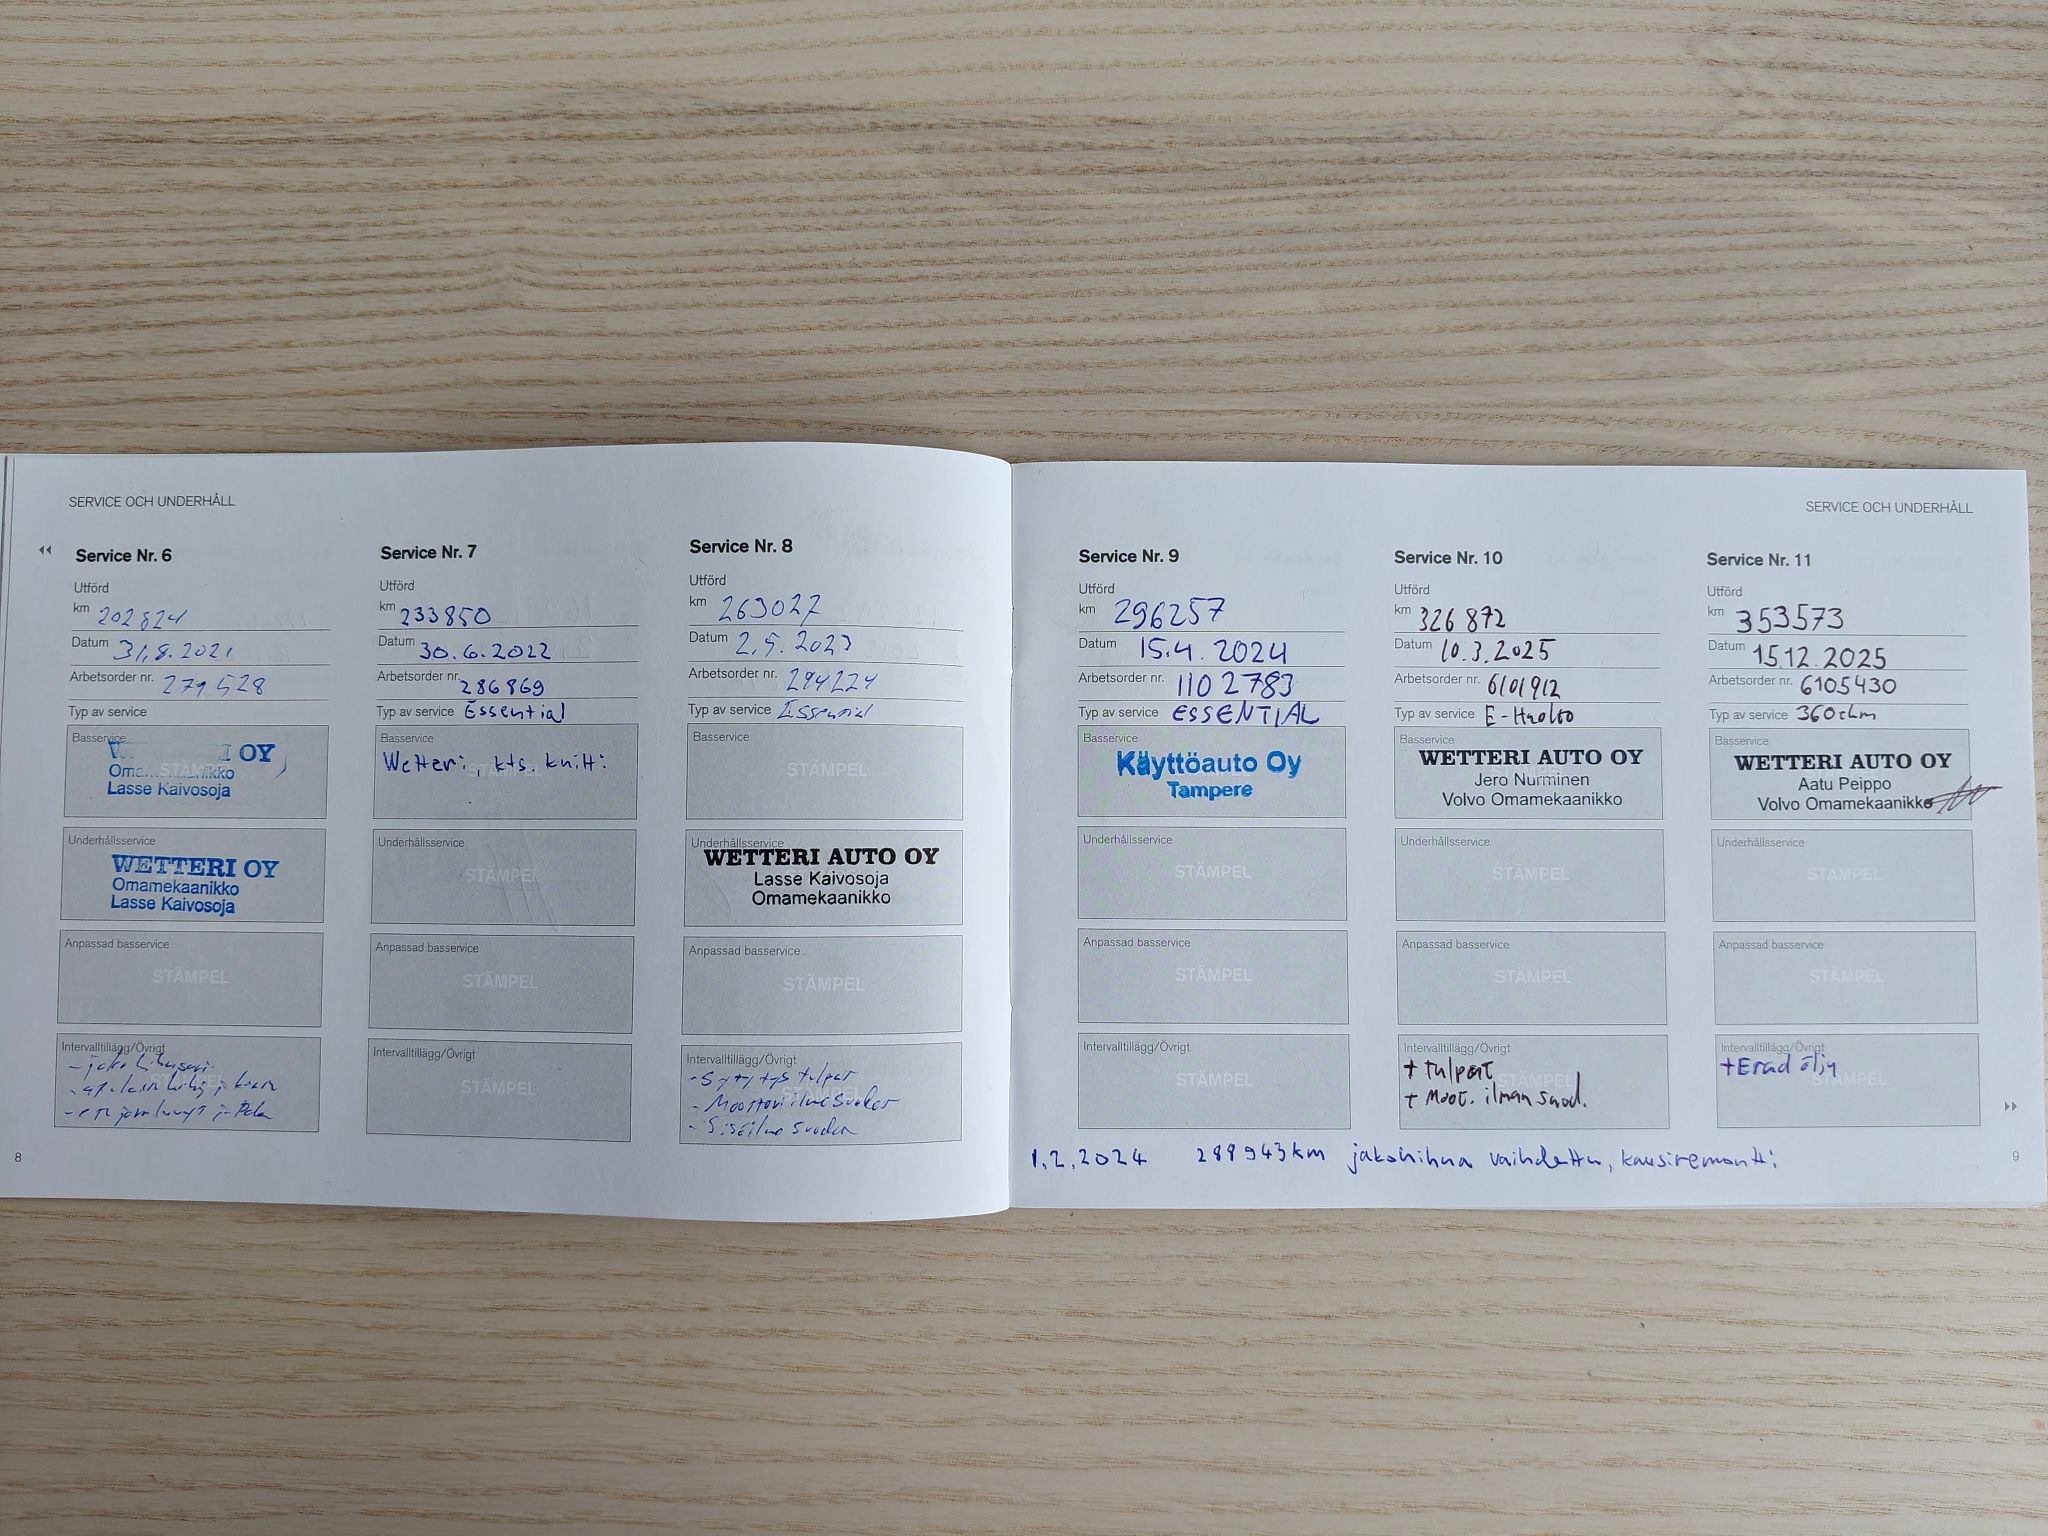 SERVICE OCH UNDERHÅLL
Service Nr. 6
Utförd
km 202824
Datum 31.8.2021
Arbetsorder nr. 279528
Typ av service
Basservice
OY
Lasse Kaivosoja
Underhållsservice
WETTERI OY
Omamekaanikko
Lasse Kaivosoja
Anpassad basservice
STÄMPEL
Intervalltillägg/Övrigt
8
Service Nr. 7
Utförd
km 233850
Datum 30.6.2022
Arbetsorder nr. 286869
Typ av service Essential
Basservice
Wetteri, kts. kuitti
STÄMPEL
Underhållsservice
STÄMPEL
Anpassad basservice
STÄMPEL
Intervalltillägg/Övrigt
STÄMPEL
Service Nr. 8
Utförd
km 263027
Datum 2.5.2023
Arbetsorder nr. 294224
Typ av service Essential
Basservice
STÄMPEL
Underhållsservice
WETTERI AUTO OY
Lasse Kaivosoja
Omamekaanikko
Anpassad basservice
STÄMPEL
Intervalltillägg/Övrigt
- Sytytystulpat
- Moottori ilmasuodat
- Sisäilmasuodat
SERVICE OCH UNDERHÅLL
Service Nr. 9
Utförd
km 296257
Datum 15.4.2024
Arbetsorder nr. 1102783
Typ av service ESSENTIAL
Basservice
Käyttöauto Oy
Tampere
Underhållsservice
STÄMPEL
Anpassad basservice
STÄMPEL
Intervalltillägg/Övrigt
STÄMPEL
Service Nr. 10
Utförd
km 326872
Datum 10.3.2025
Arbetsorder nr. 6101912
Typ av service E-Huolto
Basservice
WETTERI AUTO OY
Jero Nurminen
Volvo Omamekaanikko
Underhållsservice
STÄMPEL
Anpassad basservice
STÄMPEL
Intervalltillägg/Övrigt
+ tulpat
+ Moot. ilman suod.
Service Nr. 11
Utförd
km 353573
Datum 15.12.2025
Arbetsorder nr. 6105430
Typ av service 360tkm
Basservice
WETTERI AUTO OY
Aatu Peippo
Volvo Omamekaanikko
Underhållsservice
STÄMPEL
Anpassad basservice
STÄMPEL
Intervalltillägg/Övrigt
+Erad öljy
STÄMPEL
1.2.2024 289943km jakohihna vaihdettu, kausiremontti
9